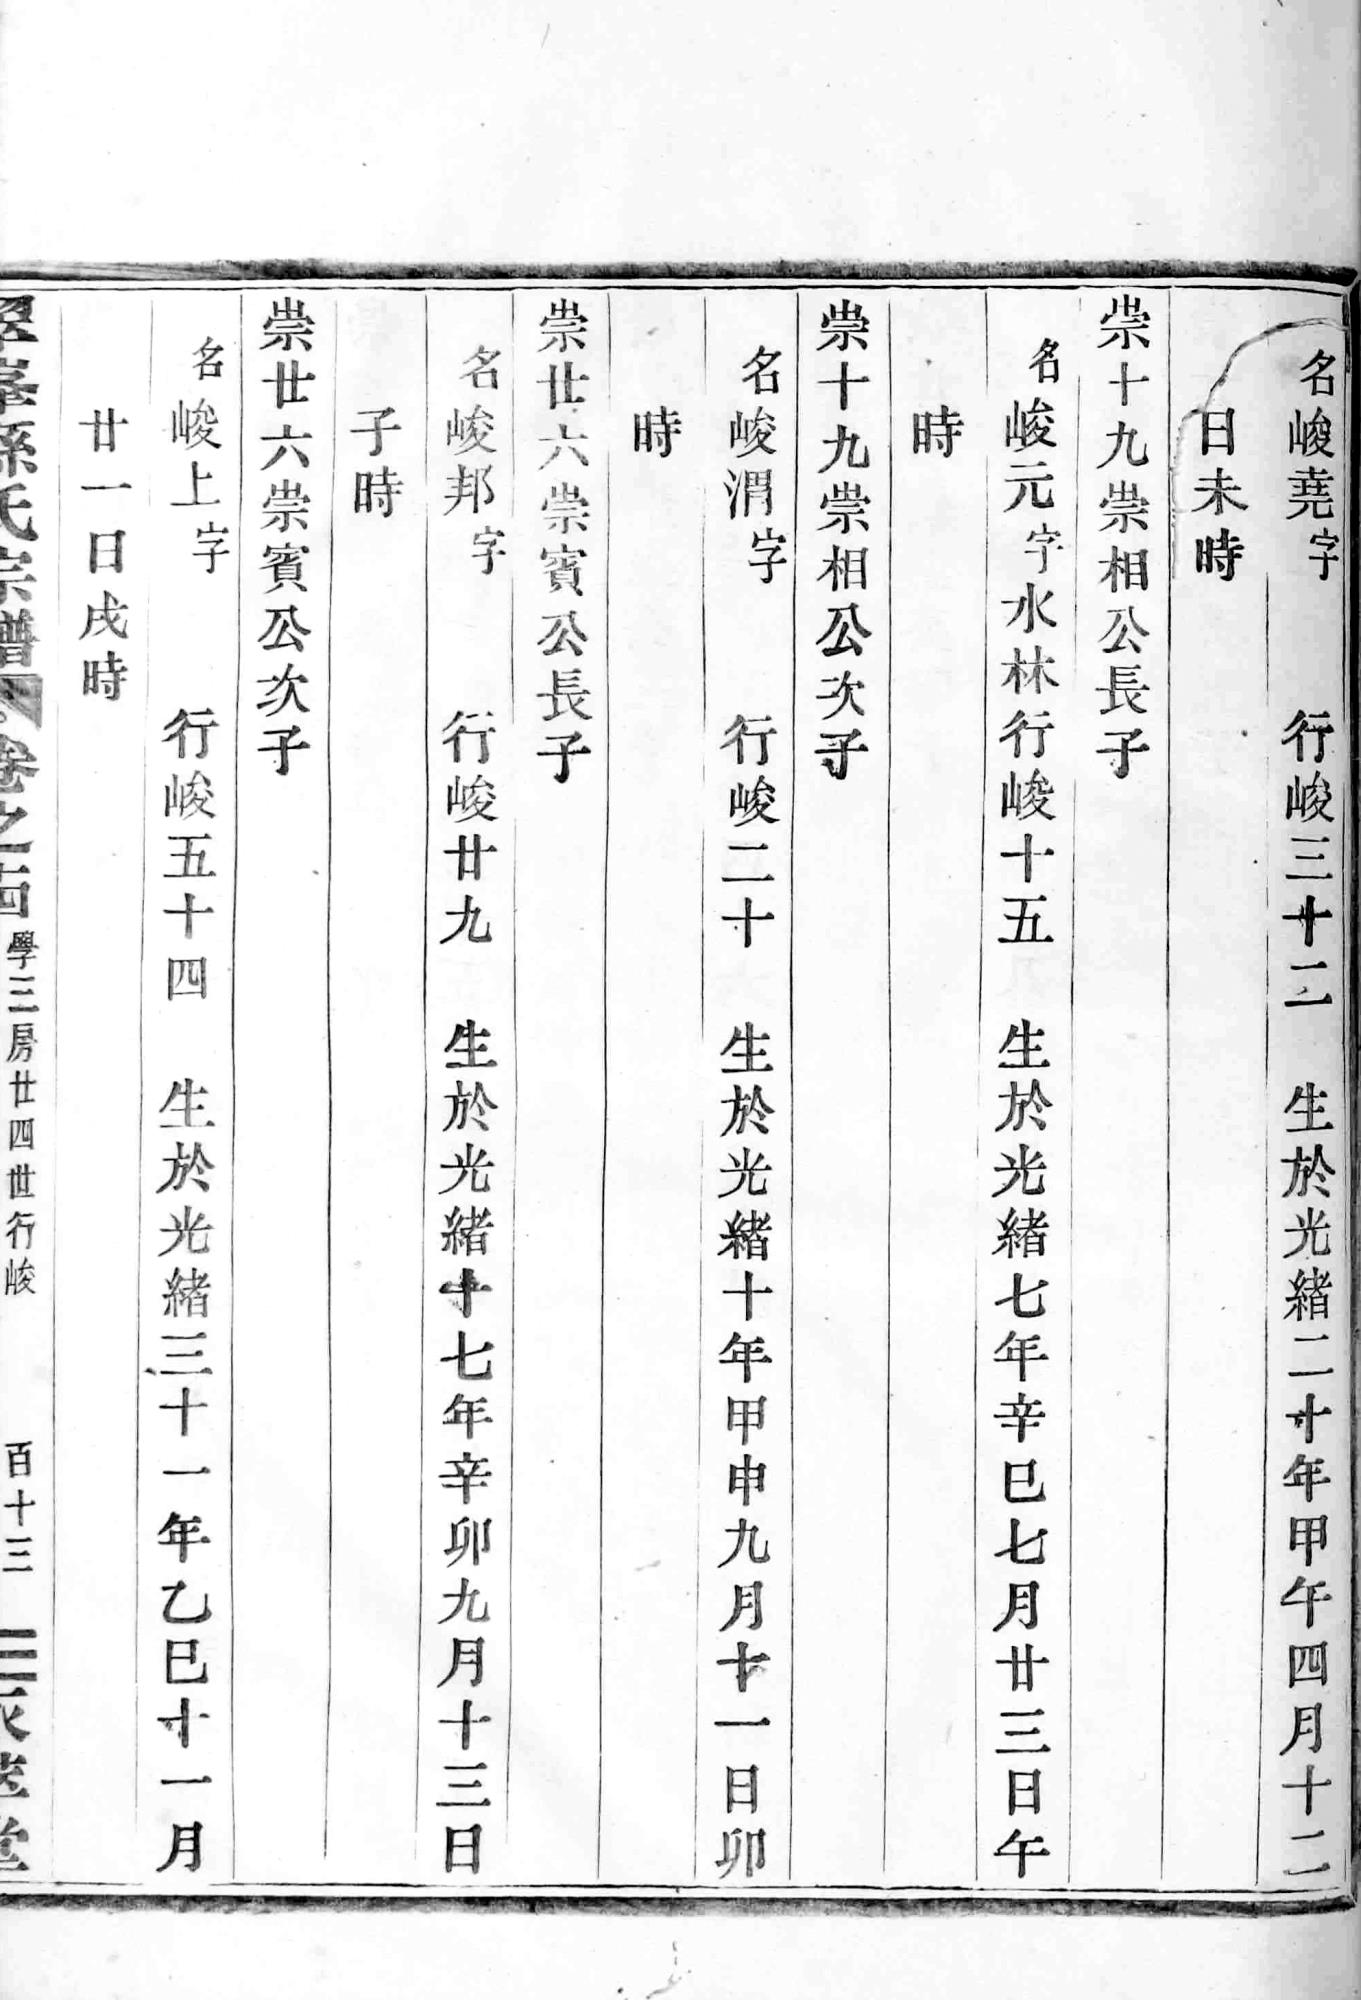 名峻堯字　行峻三十二　生於光緒二十年甲午四月十二
日未時
崇十九崇相公長子
名峻元字水林行峻十五　生於光緒七年辛巳七月廿三日午
時
崇十九崇相公次子
名峻渭字　行峻二十　生於光緒十年甲申九月十一日卯
時
崇廿六崇賓公長子
名峻邦字　行峻廿九　生於光緒十七年辛卯九月十三日
子時
崇廿六崇賓公次子
名峻上字　行峻五十四　生於光緒三十一年乙巳十一月
廿一日戌時
孫氏宗譜　卷之十四　學三房廿四世行峻　百十三　堂